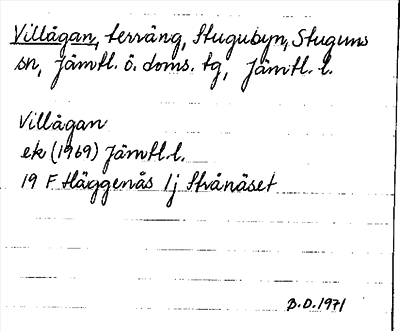 Villågan, terräng, Stugubyn, Stuguns
sn, Jämtl. ö. doms. tg, Jämtl. l.
Villågan
ek (1969) Jämtl. l.
19 F Häggenås 1j Strånäset
B.O. 1971